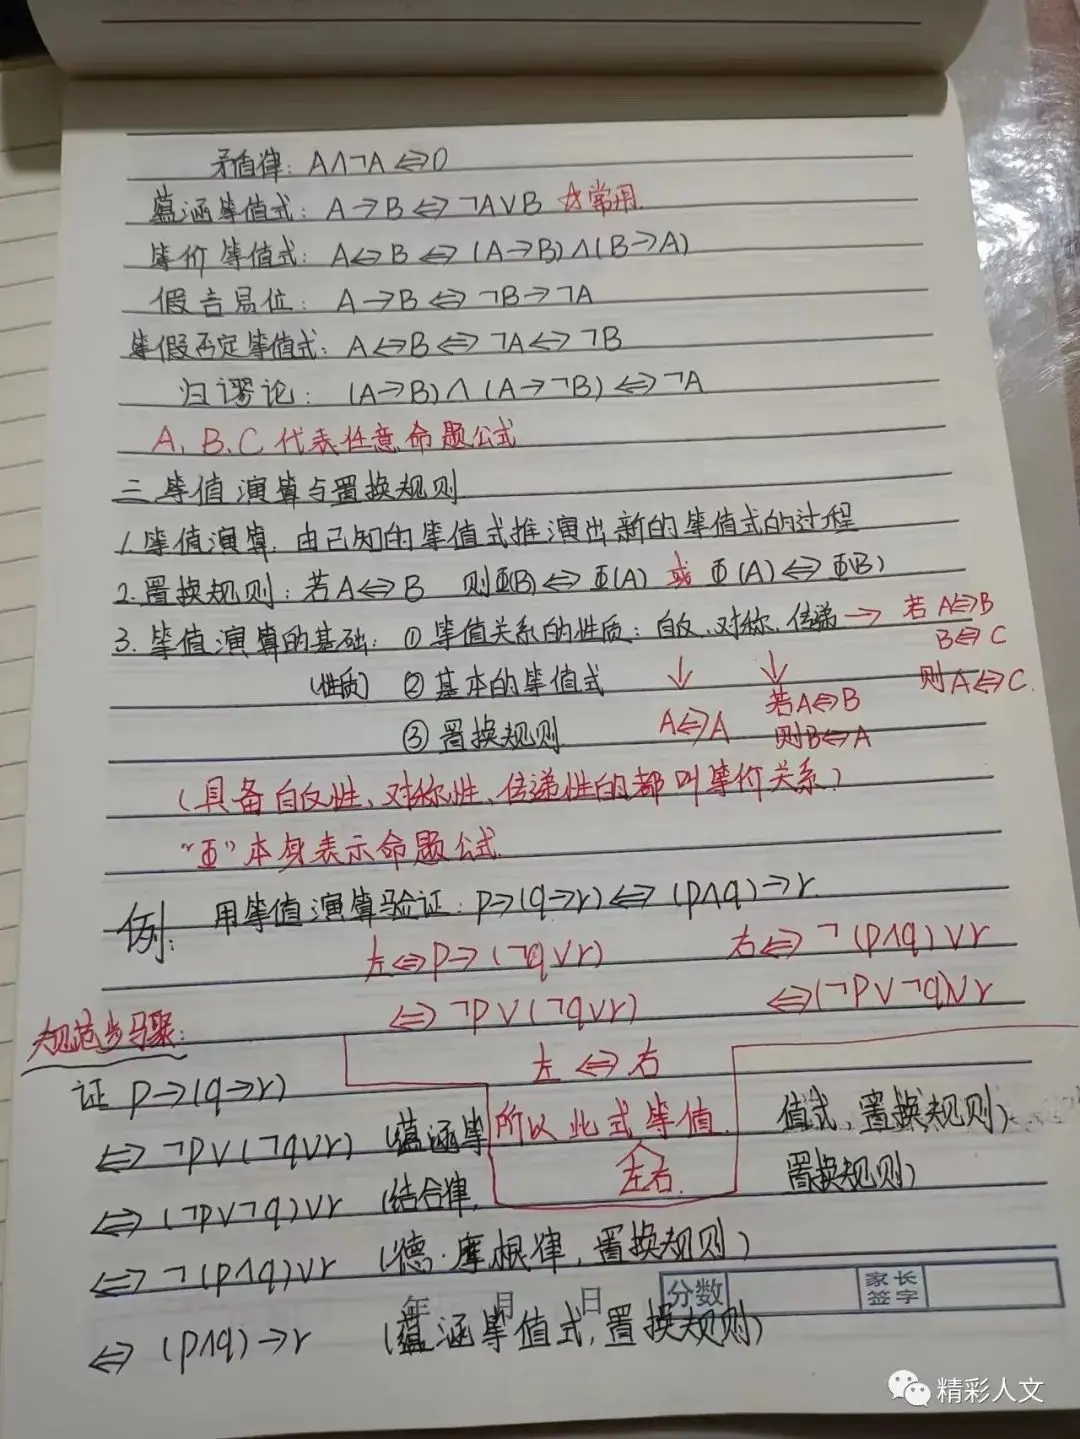 矛盾律: A∧¬A⇔0
蕴涵等值式: A→B⇔¬A∨B ☆常用
等价等值式: A↔B⇔(A→B)∧(B→A)
假言易位: A→B⇔¬B→¬A
等假否定等值式: A↔B⇔¬A↔¬B
归谬论: (A→B)∧(A→¬B)⇔¬A
A、B、C代表任意命题公式
三 等值演算与置换规则
1.等值演算:由已知的等值式推演出新的等值式的过程
2.置换规则:若A⇔B 则Φ(B)⇔Φ(A) 或 Φ(A)⇔Φ(B)
3.等值演算的基础: ①等值关系的性质: 自反、对称、传递→ 若A⇔B
B⇔C
则A⇔C.
(性质) ②基本的等值式 ↓ ↓
A⇔A 若A⇔B
则B⇔A
③置换规则
(具备自反性、对称性、传递性的都叫等价关系)
“Φ”本身表示命题公式
例: 用等值演算验证: p→(q→r)⇔(p∧q)→r
左⇔p→(¬q∨r) 右⇔¬(p∧q)∨r
⇔¬p∨(¬q∨r) ⇔(¬p∨¬q)∨r
规范步骤:
左⇔右
证 p→(q→r)
所以此式等值
左右.
⇔¬p∨(¬q∨r) (蕴涵等 值式、置换规则)
⇔(¬p∨¬q)∨r (结合律, 置换规则)
⇔¬(p∧q)∨r (德·摩根律,置换规则)
年 月 日 分数 家长签字
⇔(p∧q)→r (蕴涵等值式,置换规则)
精彩人文